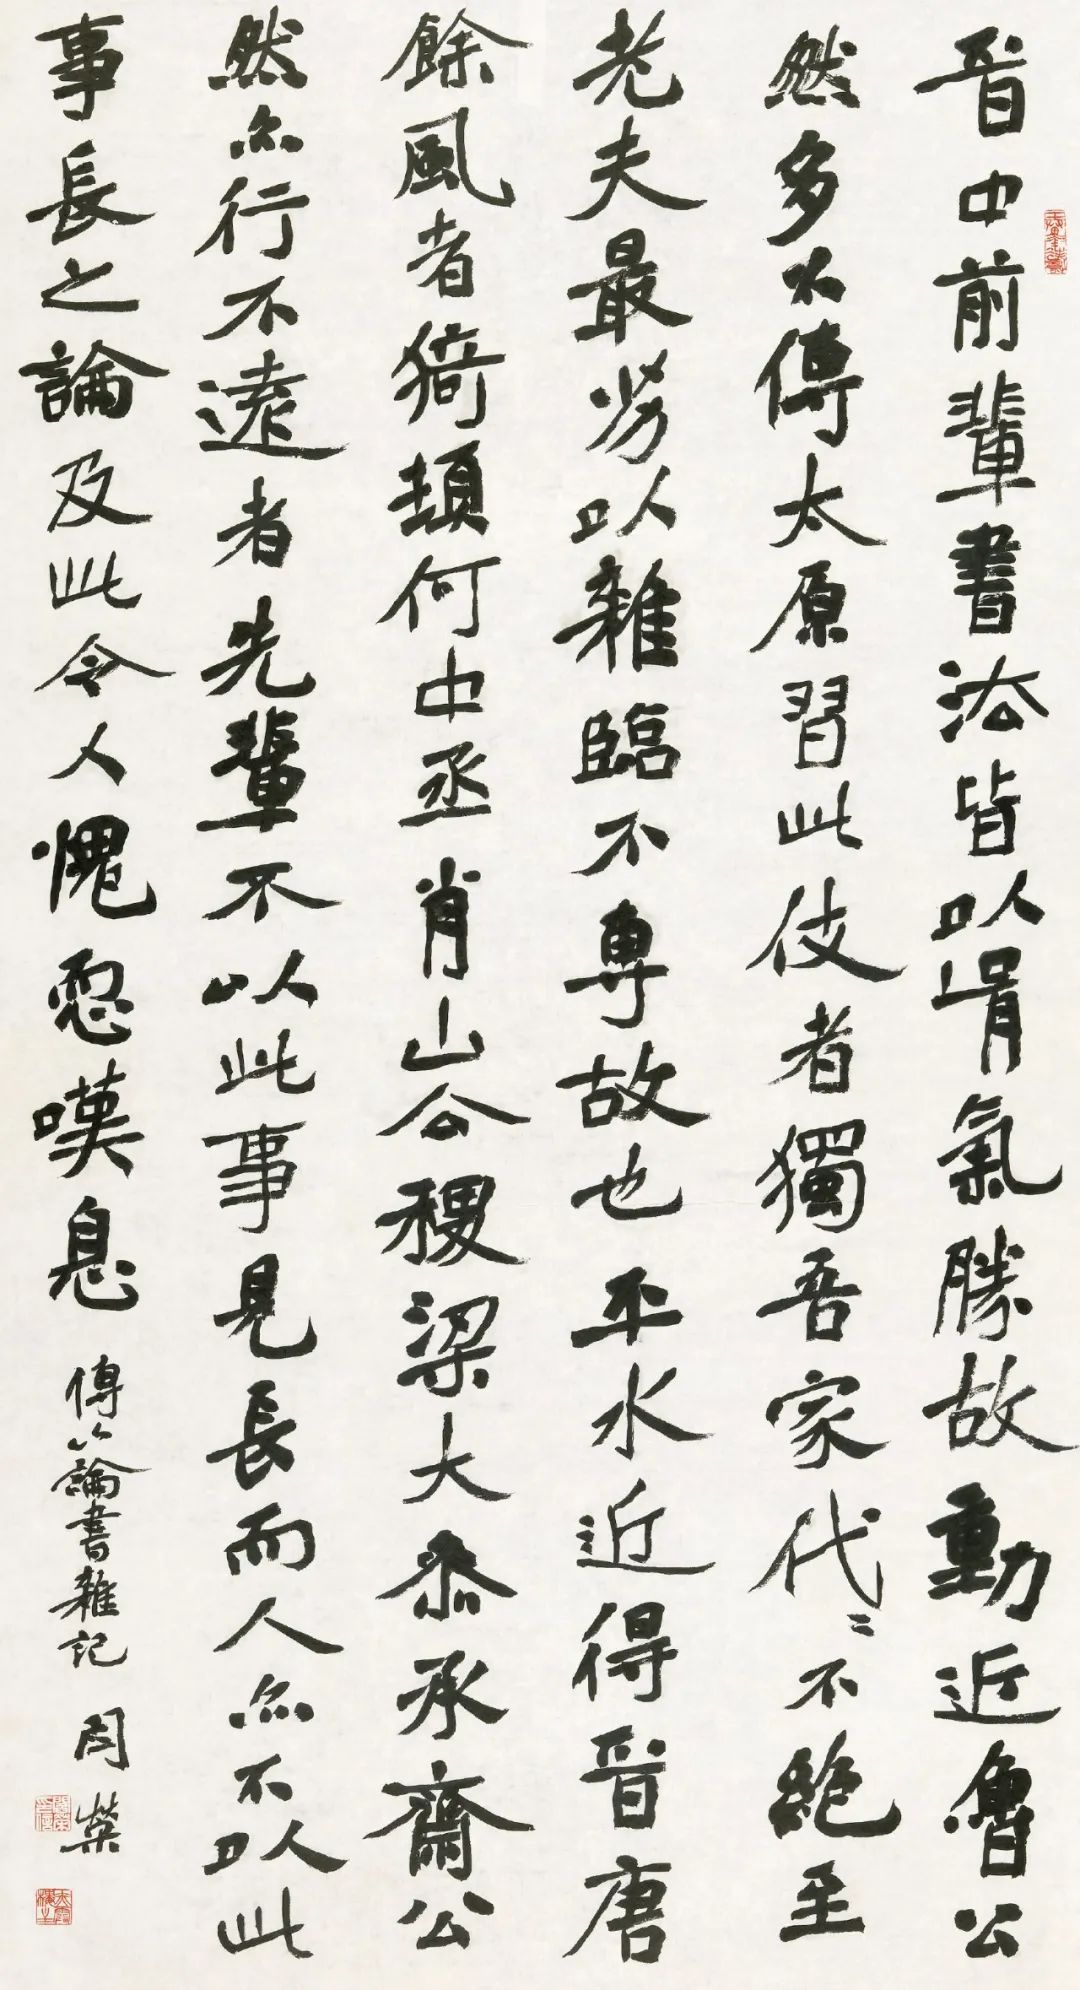 晉中前輩書法皆以骨氣勝故動近魯公
然多不傳太原習此伎者獨吾家代〻不絕至
老夫最劣以雜臨不專故也平水近得晉唐
餘風者猗頓何中丞肖山公稷梁大參承齋公
然亦行不遠者先輩不以此事見長而人亦不以此
事長之論及此令人愧恧嘆息
傅山論書雜記 周